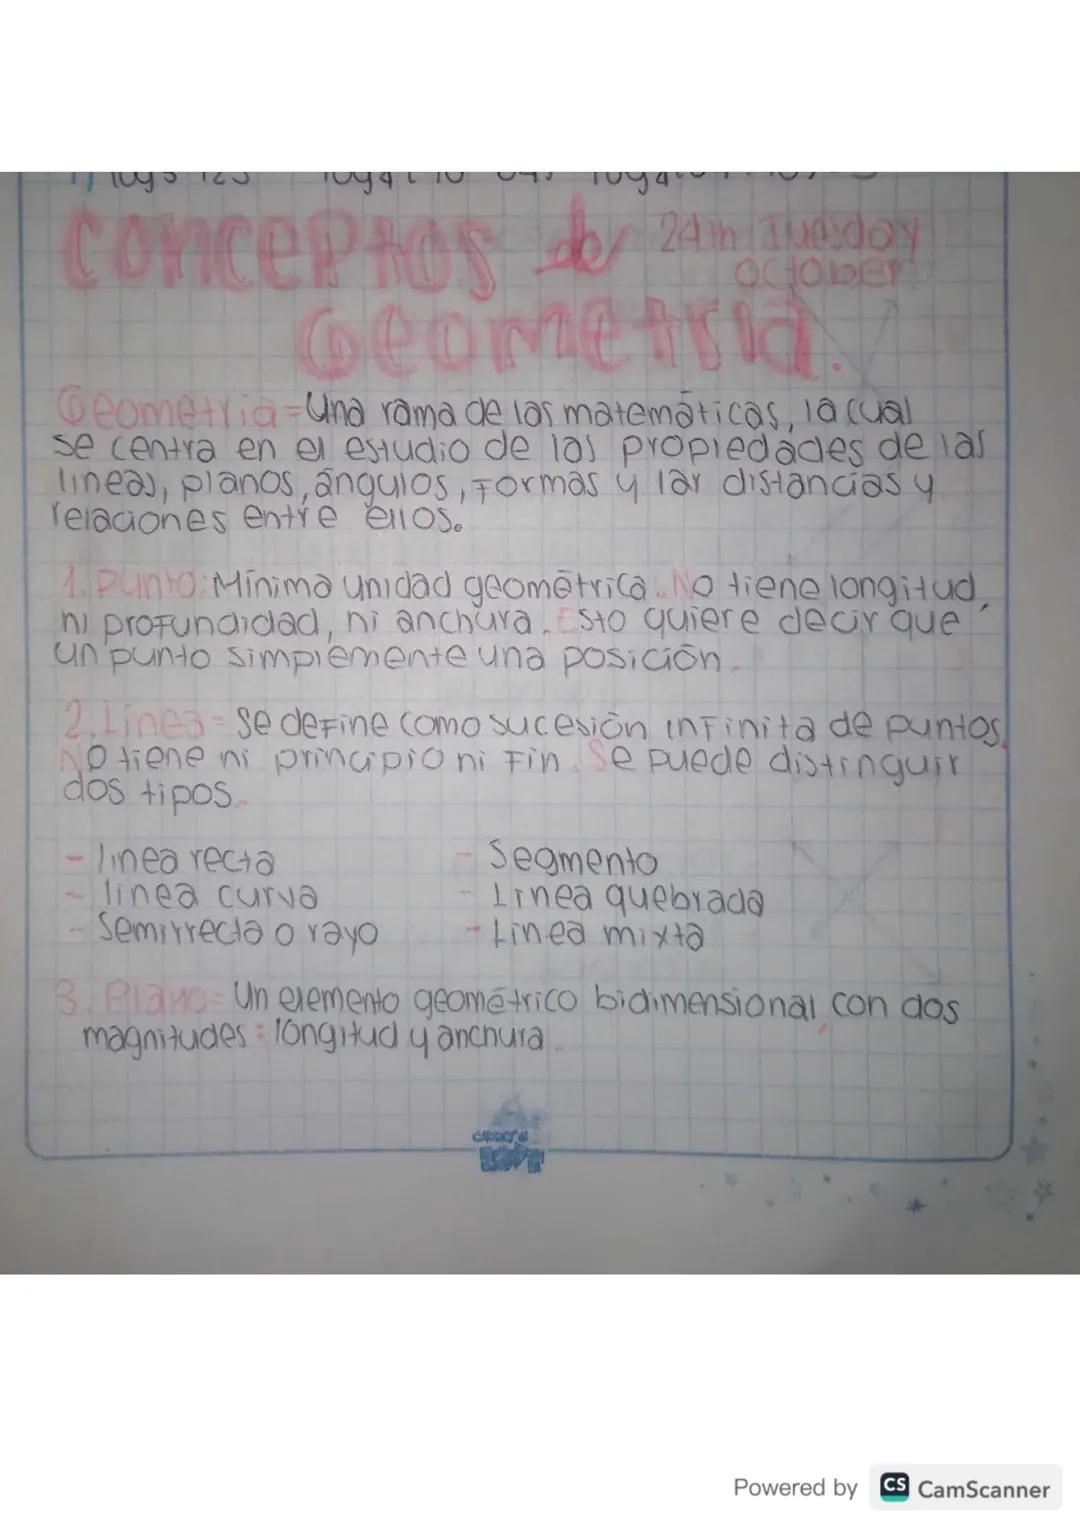 conceptos de
24th Tuesday
october
Geometria.
Geometria = Una rama de las matemáticas, la cual
se centra en el estudio de las propiedades de las
lineas, planos, ángulos, formas y lar distancias y
relaciones entre ellos.
1. Punto: Mínima unidad geométrica. No tiene longitud,
ni profundidad, ni anchura. Esto quiere decir que
un punto simplemente una posición.
2. Linea = Se define como sucesión infinita de puntos.
No tiene ni principio ni fin. Se puede distinguir
dos tipos.
- linea recta
- linea curva
- Semirrecta o rayo
- Segmento
- Linea quebrada
- Linea mixta
3. Plano = Un elemento geométrico bidimensional, con dos
magnitudes: longitud y anchura.
Powered by CS CamScanner